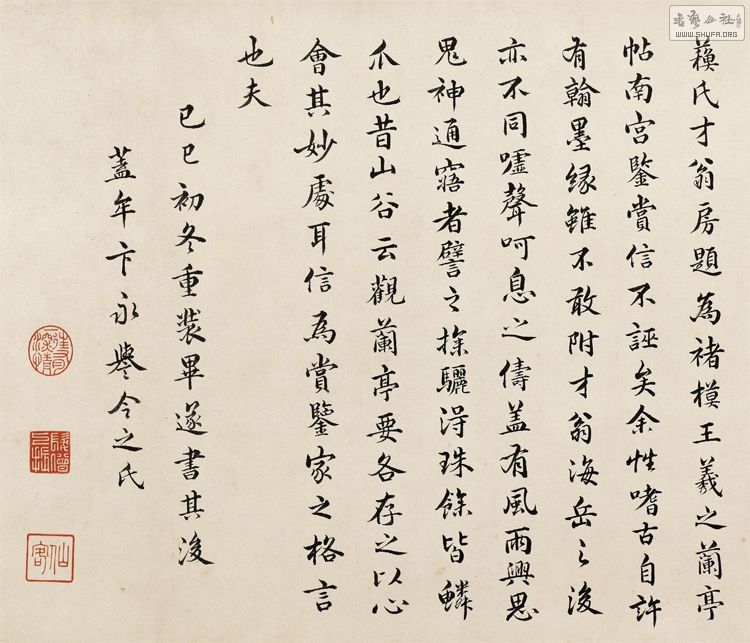 蘋氏才翁房題為褚模王羲之蘭亭
帖南宮鑒賞信不誣矣余性嗜古自許
有翰墨緣雖不敢附才翁海岳之後
亦不同噓聲呵息之儔盖有風雨興思
鬼神通窹者譬之探驪得珠餘皆鱗
爪也昔山谷云觀蘭亭要各存之以心
會其妙處耳信為賞鑒家之格言
也夫
己巳初冬重裝畢遂書其後
蓋牟卞永譽令之氏
仙客
書藝公社
WWW.SHUFA.ORG